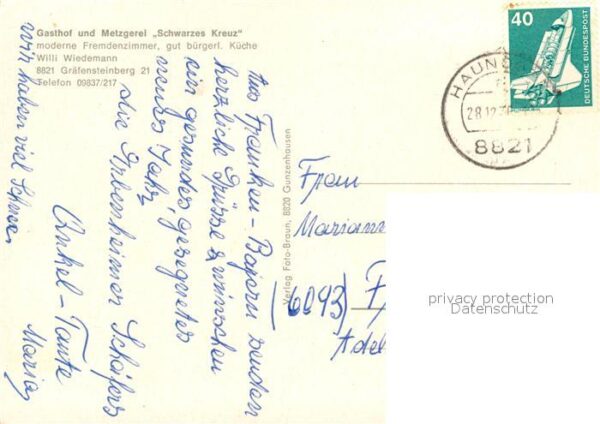 Gasthof und Metzgerei „Schwarzes Kreuz"
moderne Fremdenzimmer, gut bürgerl. Küche
Willi Wiedemann
8821 Gräfensteinberg 21
Telefon 09837/217
Aus Franken-Bayern senden
herzliche Grüsse & wünschen
ein gesundes, gesegnetes
neues Jahr
die Erbenheimer Schäfers
Onkel-Tante
Maria
Wir haben viel Schnee
Verlag Foto-Braun, 8820 Gunzenhausen
40
DEUTSCHE BUNDESPOST
HAUND
28.12.
8821
Frau
Mariann
(6093) F
Adel
privacy protection
Datenschutz